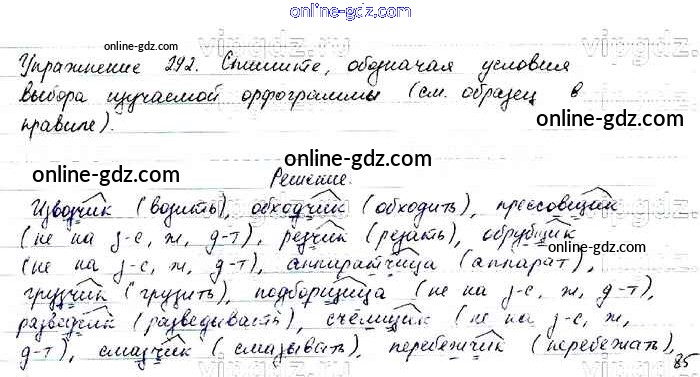 online-gdz.com
online-gdz.com
Упражнение 292. Спишите, обозначая условия
выбора изучаемой орфограммы (см. образец в
правиле).
online-gdz.com
online-gdz.com
online-gdz.com
Решение.
Извозчик (возить), обходчик (обходить), прессовщик
(не на з-с, ж, д-т), резчик (резать), обрубщик
online-gdz.com
(не на з-с, ж, д-т), аппаратчица (аппарат),
грузчик (грузить), подборщица (не на з-с, ж, д-т),
разведчик (разведывать), счётчик (не на з-с, ж,
д-т), смазчик (смазывать), перебежчик (перебежать),
online-gdz.com
85